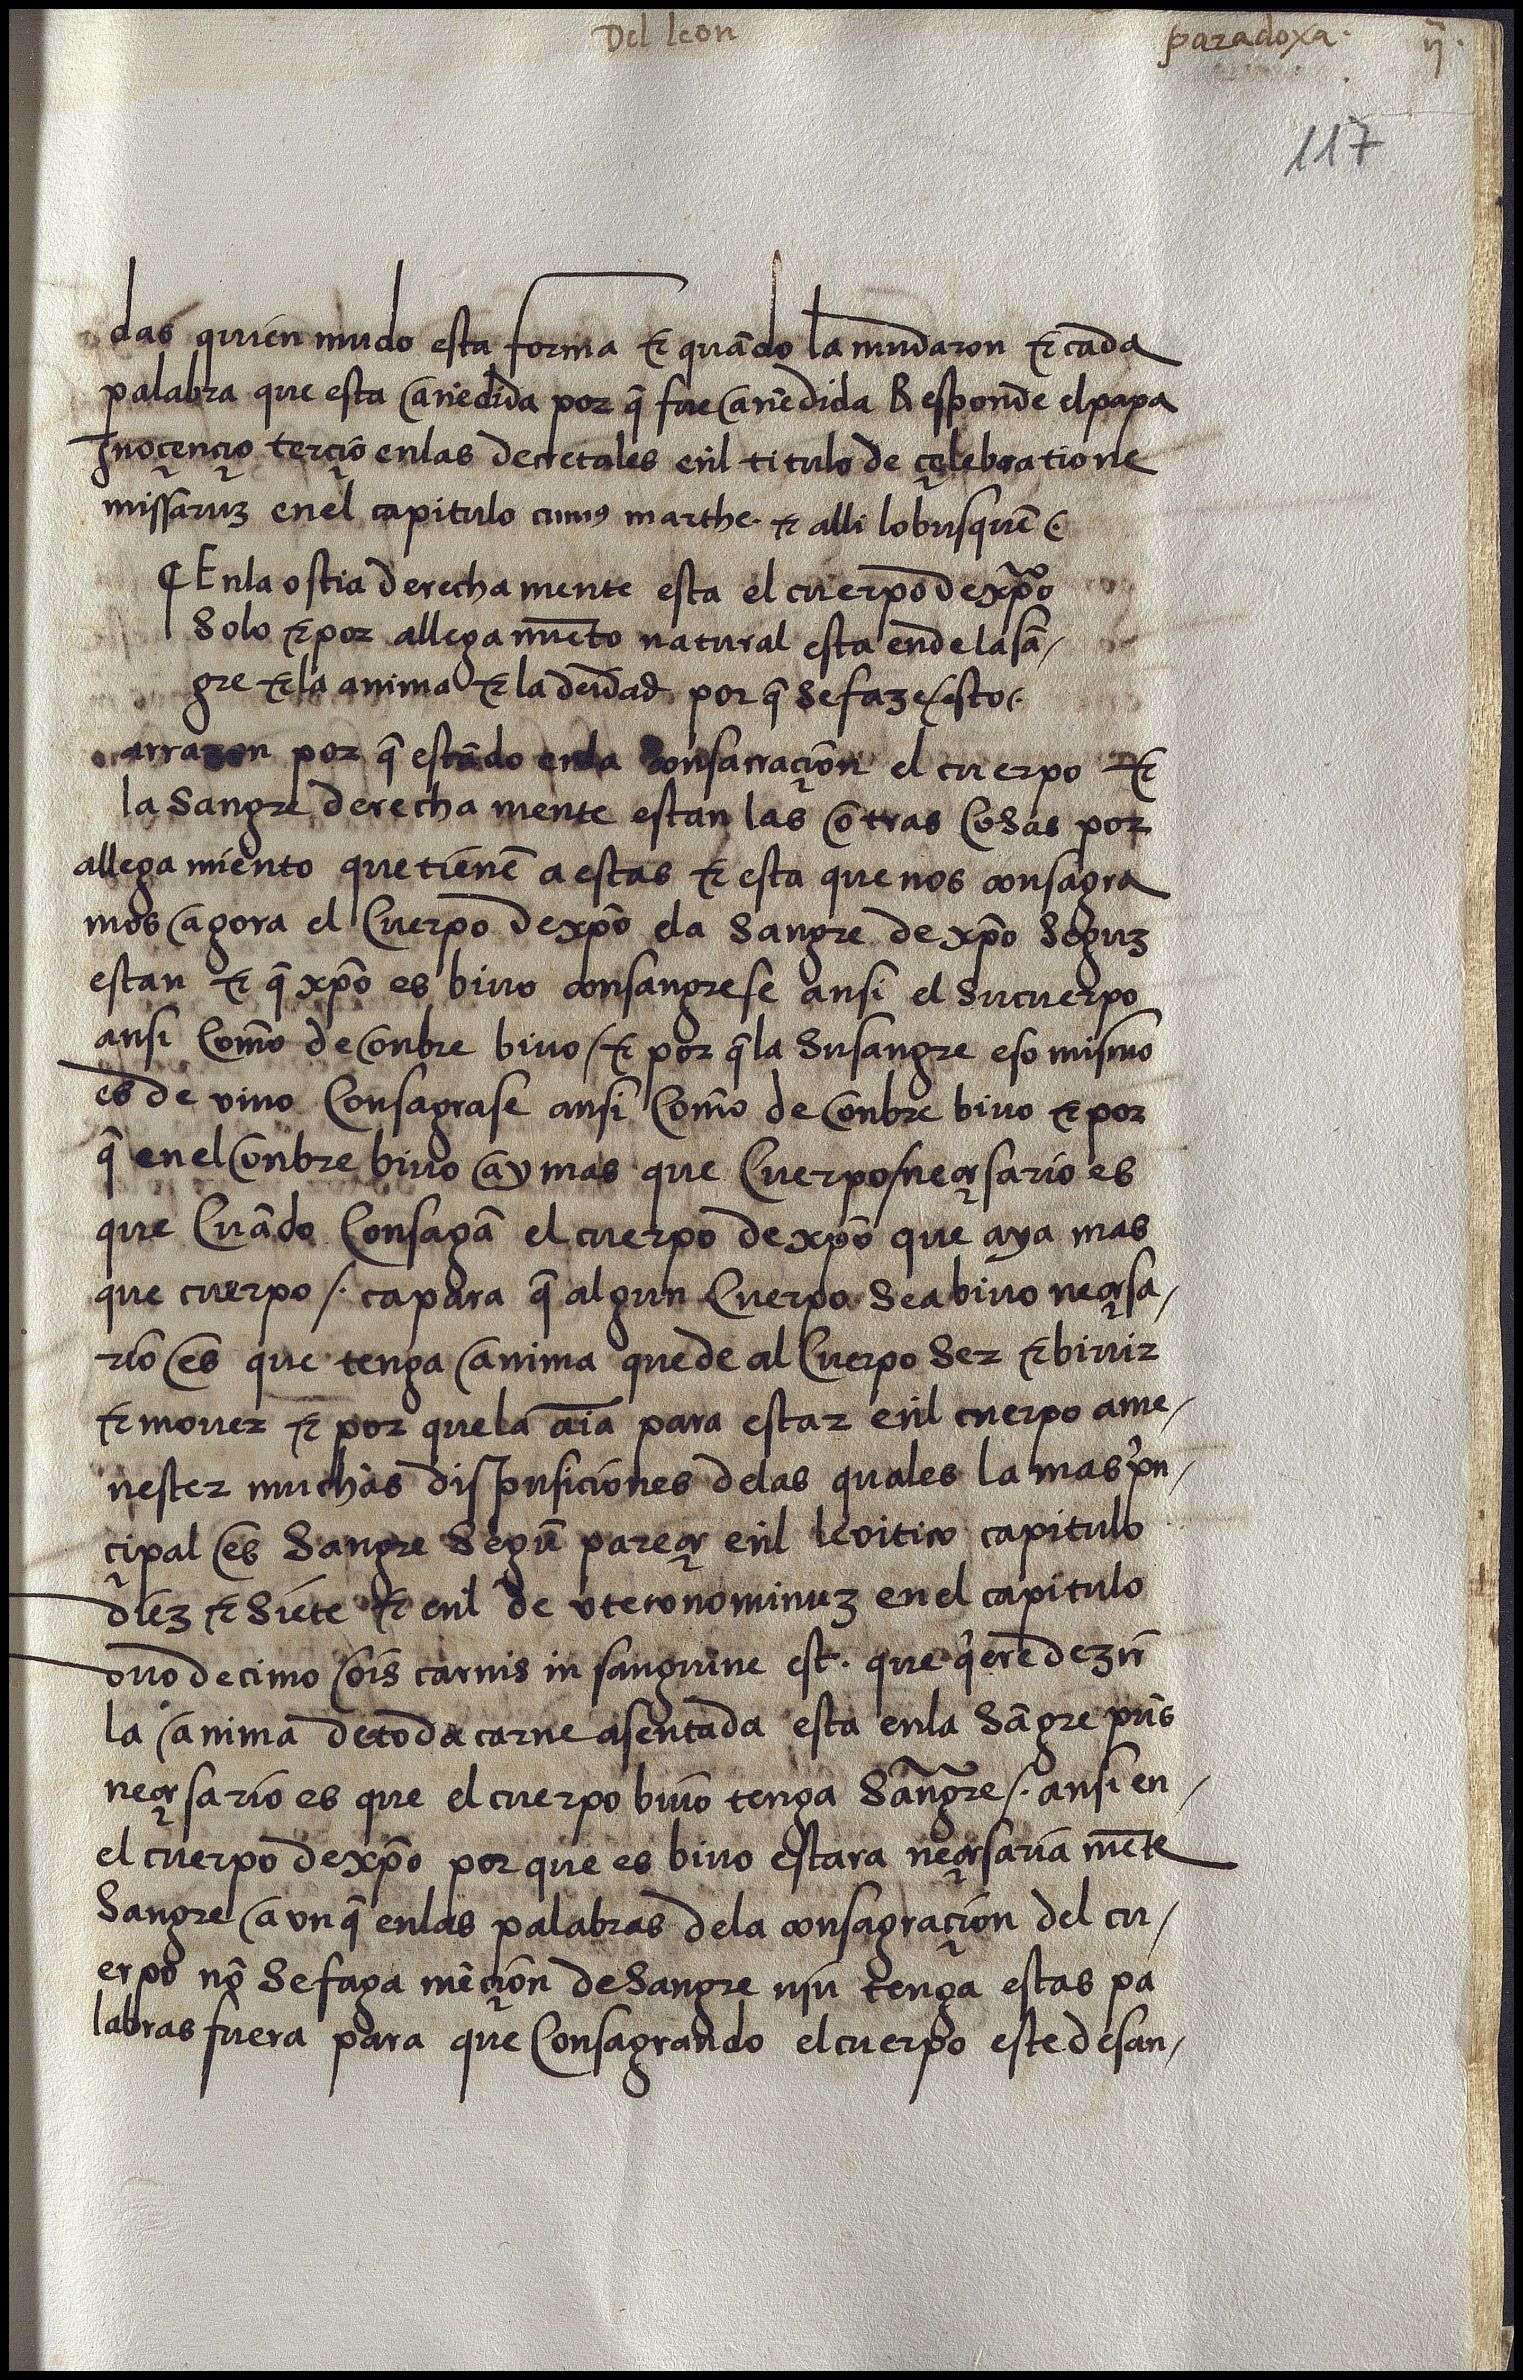 Del leon paradoxa. ij.
117
das quien mudo esta forma & quãdo la mudaron & cada
palabra que esta anedida por q̃ fue anẽdida Responde el papa
Inoçençio terçio enlas decretales enl titulo de çelebratione
missaruz enel capitulo cum marthe. & alli lo busquẽ
¶ Enla ostia derecha mente esta el cuerpo de xp̃o
Solo & por allegamiẽto natural esta ende la sã/
gre & la anima & la deidad por q̃ se faze esto
arrazon por q̃ estãdo enla consacraçion el cuerpo &
la Sangre derecha mente estan las otras cosas por
allega miento que tienẽ a estas & esta que nos consagra
mos agora el Cuerpo de xp̃o ela Sangre de xp̃o Seguz
estan & q̃ xp̃o es biuo consangrese ansi el su cuerpo
ansi Como de onbre biuo / & por q̃ la Su sangre eso mismo
es de vino Consagrase ansi Como de onbre biuo & por
q̃ enel onbre biuo ay mas que Cuerpo / neçesario es
que Cuãdo Consagã el cuerpo de xp̃o que aya mas
que cuerpo /. ca para q̃ algun Cuerpo Sea biuo neçesa/
rio es que tenga anima que de al Cuerpo Ser & biuir
& mouer & por que la aĩa para estar enl cuerpo a me/
nester muchas dispusiciones delas quales la mas prin/
çipal es Sangre Segũ pareçe enl leuitico capitulo
diez & Siete & enl de uteronominuz enel capitulo
duo decimo oĩs carnis in sanguine est. que q̃ere dezir
la anima de toda carne asentada esta enla Sãgre pũs
neçesario es que el cuerpo biuo tenga Sãngre /. ansi en/
el cuerpo de xp̃o por que es biuo estara neçesaria mẽte
Sangre aun q̃ enlas palabras dela consagraçion del cu/
erpo nõ Se faga mẽçion de Sangre nin tenga estas pa
labras fuera para que Consagrando el cuerpo este de san/